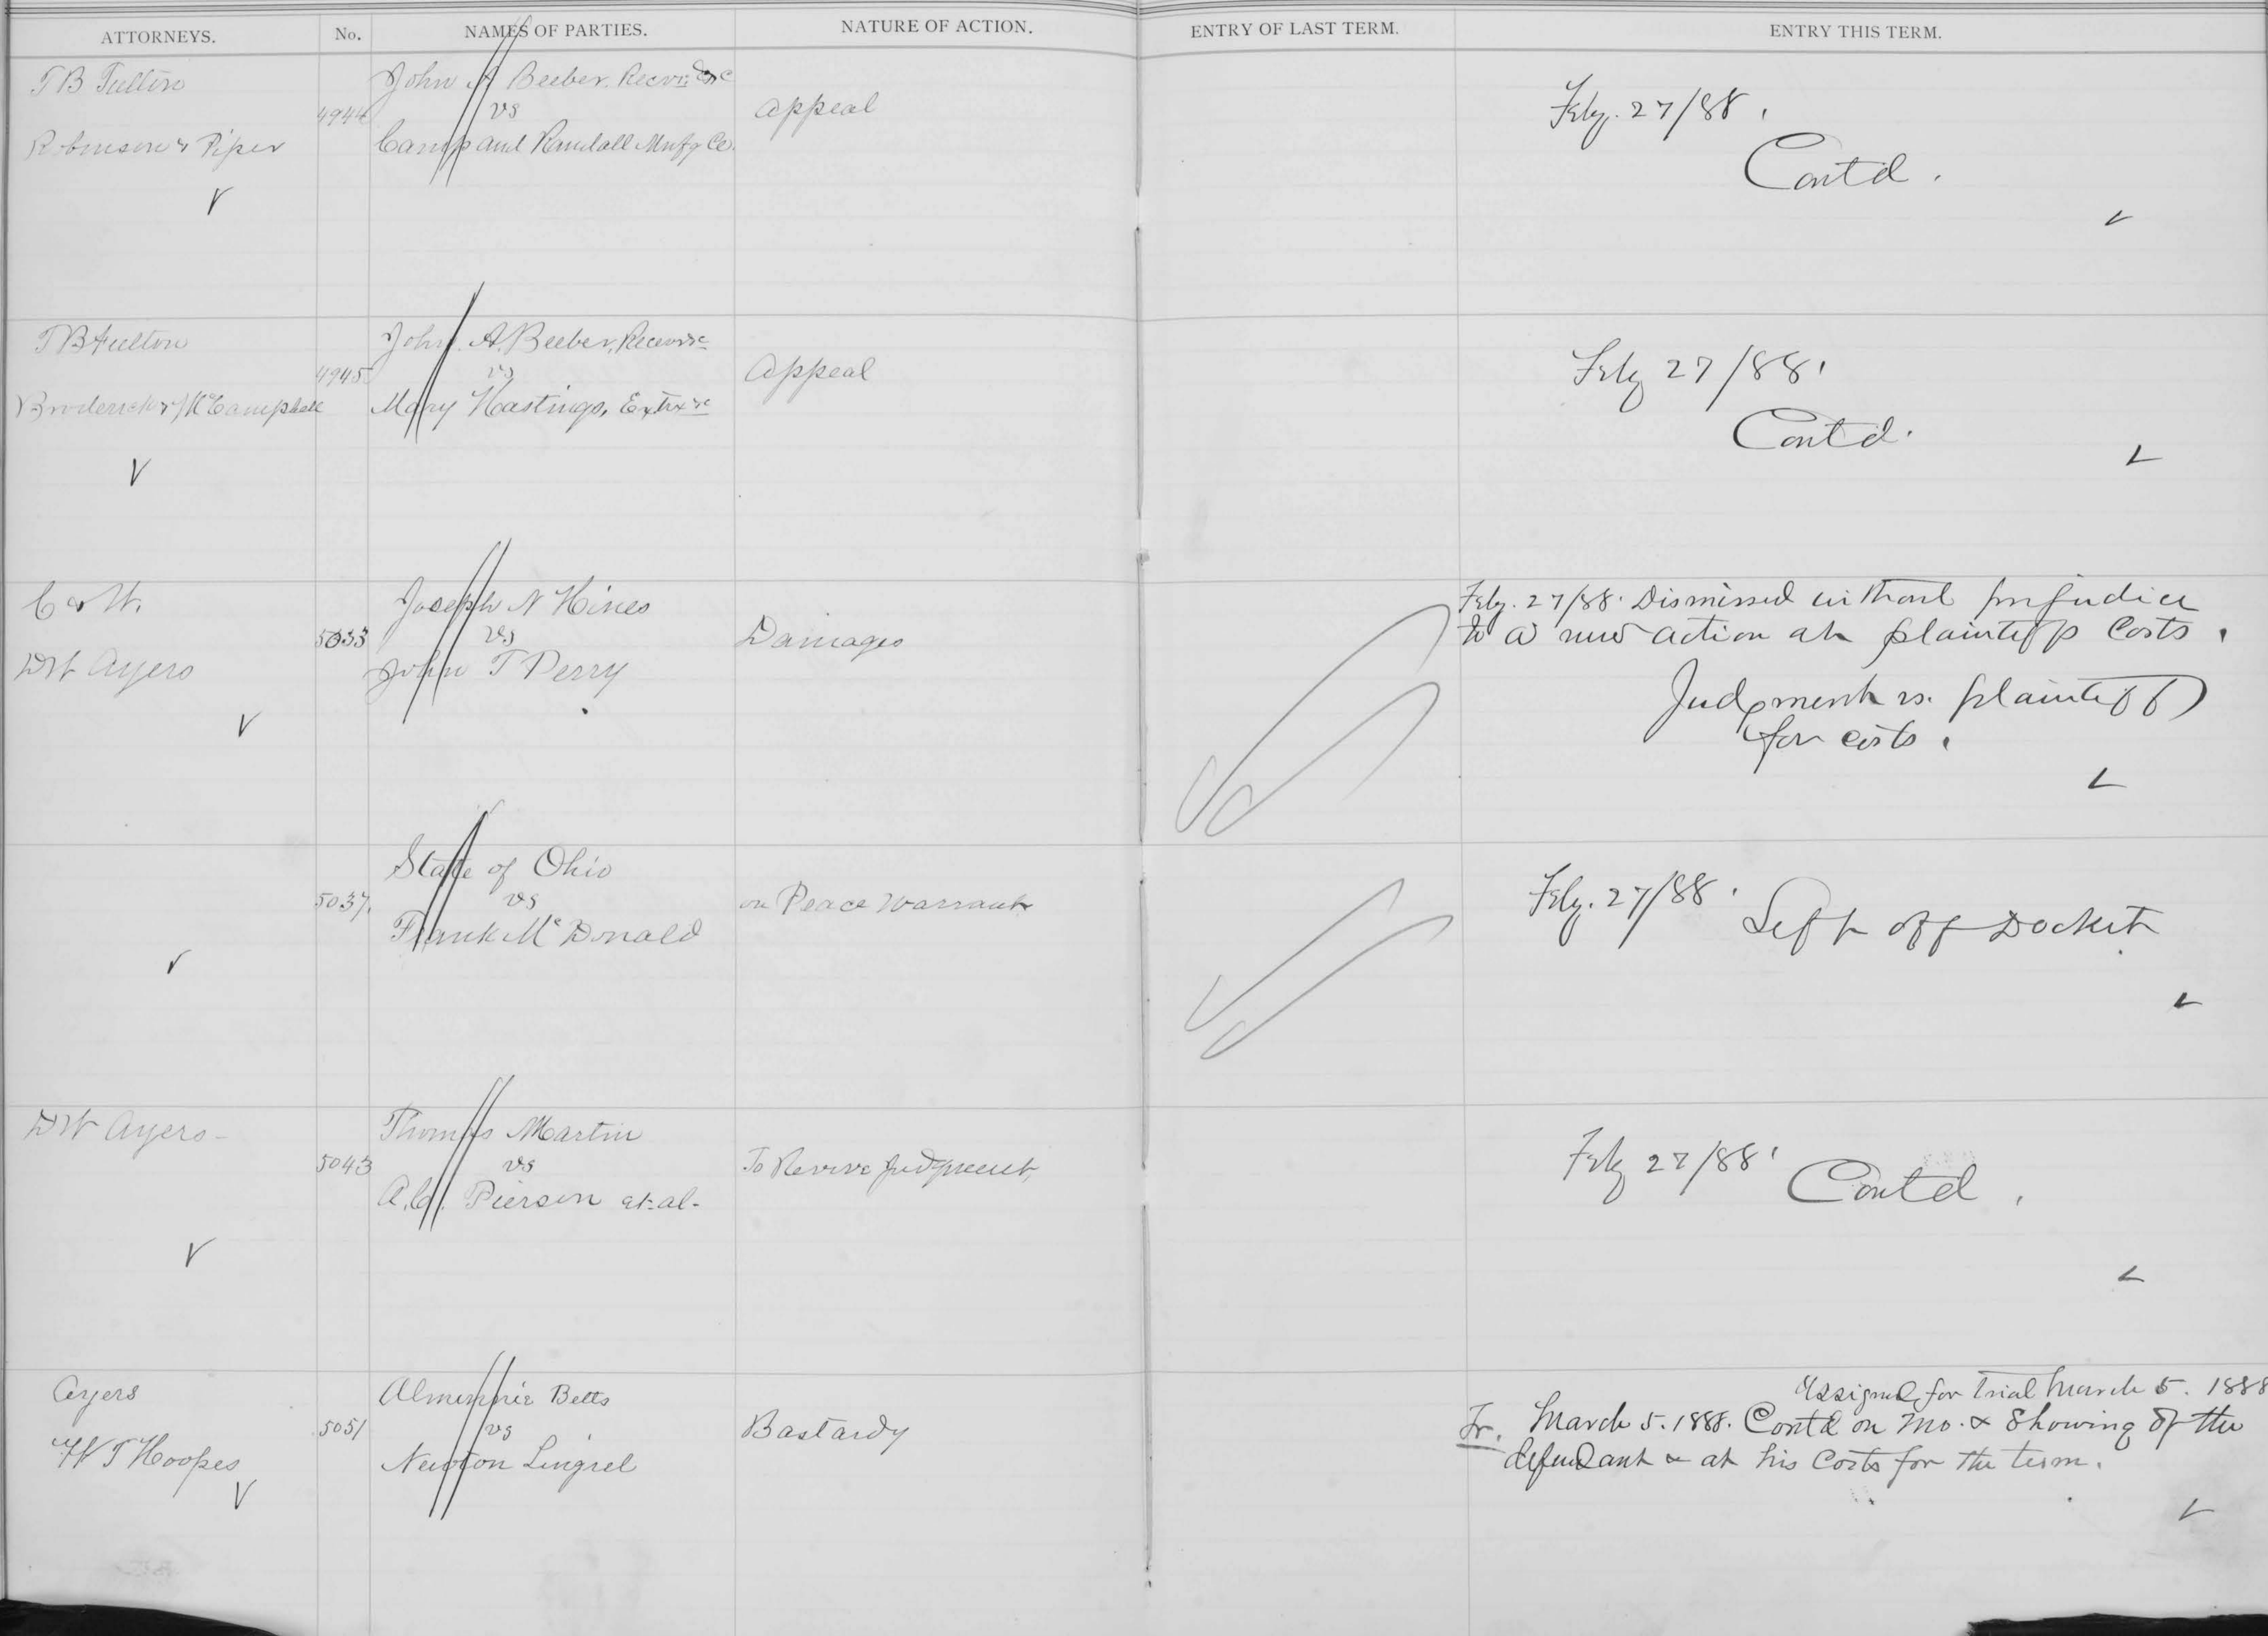 ATTORNEYS. No. NAMES OF PARTIES. NATURE OF ACTION. ENTRY OF LAST TERM. ENTRY THIS TERM.
T B Fulton
Robinson & Piper
4944
John A Beeber, Recvr &c
vs
Camp and Randall Mnfg Co.
Appeal
Feby. 27/88.
Contd.
T B Fulton
Broderick & McCampbell
4945
John A. Beeber, Recvr &c
vs
Mary Hastings, Extrx &c
Appeal
Feby 27/88.
Contd.
C & W.
D W Ayers
5033
Joseph N Hines
vs
John T Perry
Damages
Feby. 27/88. Dismissed without prejudice
to a new action at plaintiffs Costs.
Judgment vs. plaintiff
for costs.
5037.
State of Ohio
vs
Frank Mc Donald
on Peace Warrant
Feby. 27/88. Left off Docket
D W Ayers -
5043
Thomas Martin
vs
A. C. Pierson et-al-
To Revive Judgment,
Feby 27/88. Contd.
Ayers
W T Hoopes
5051
Betts
vs
Newton Lingrel
Bastardy
Assigned for Trial March 5. 1888
Jr. March 5. 1888. Contd on Mo. & Showing of the
defendant & at his Costs for the term.